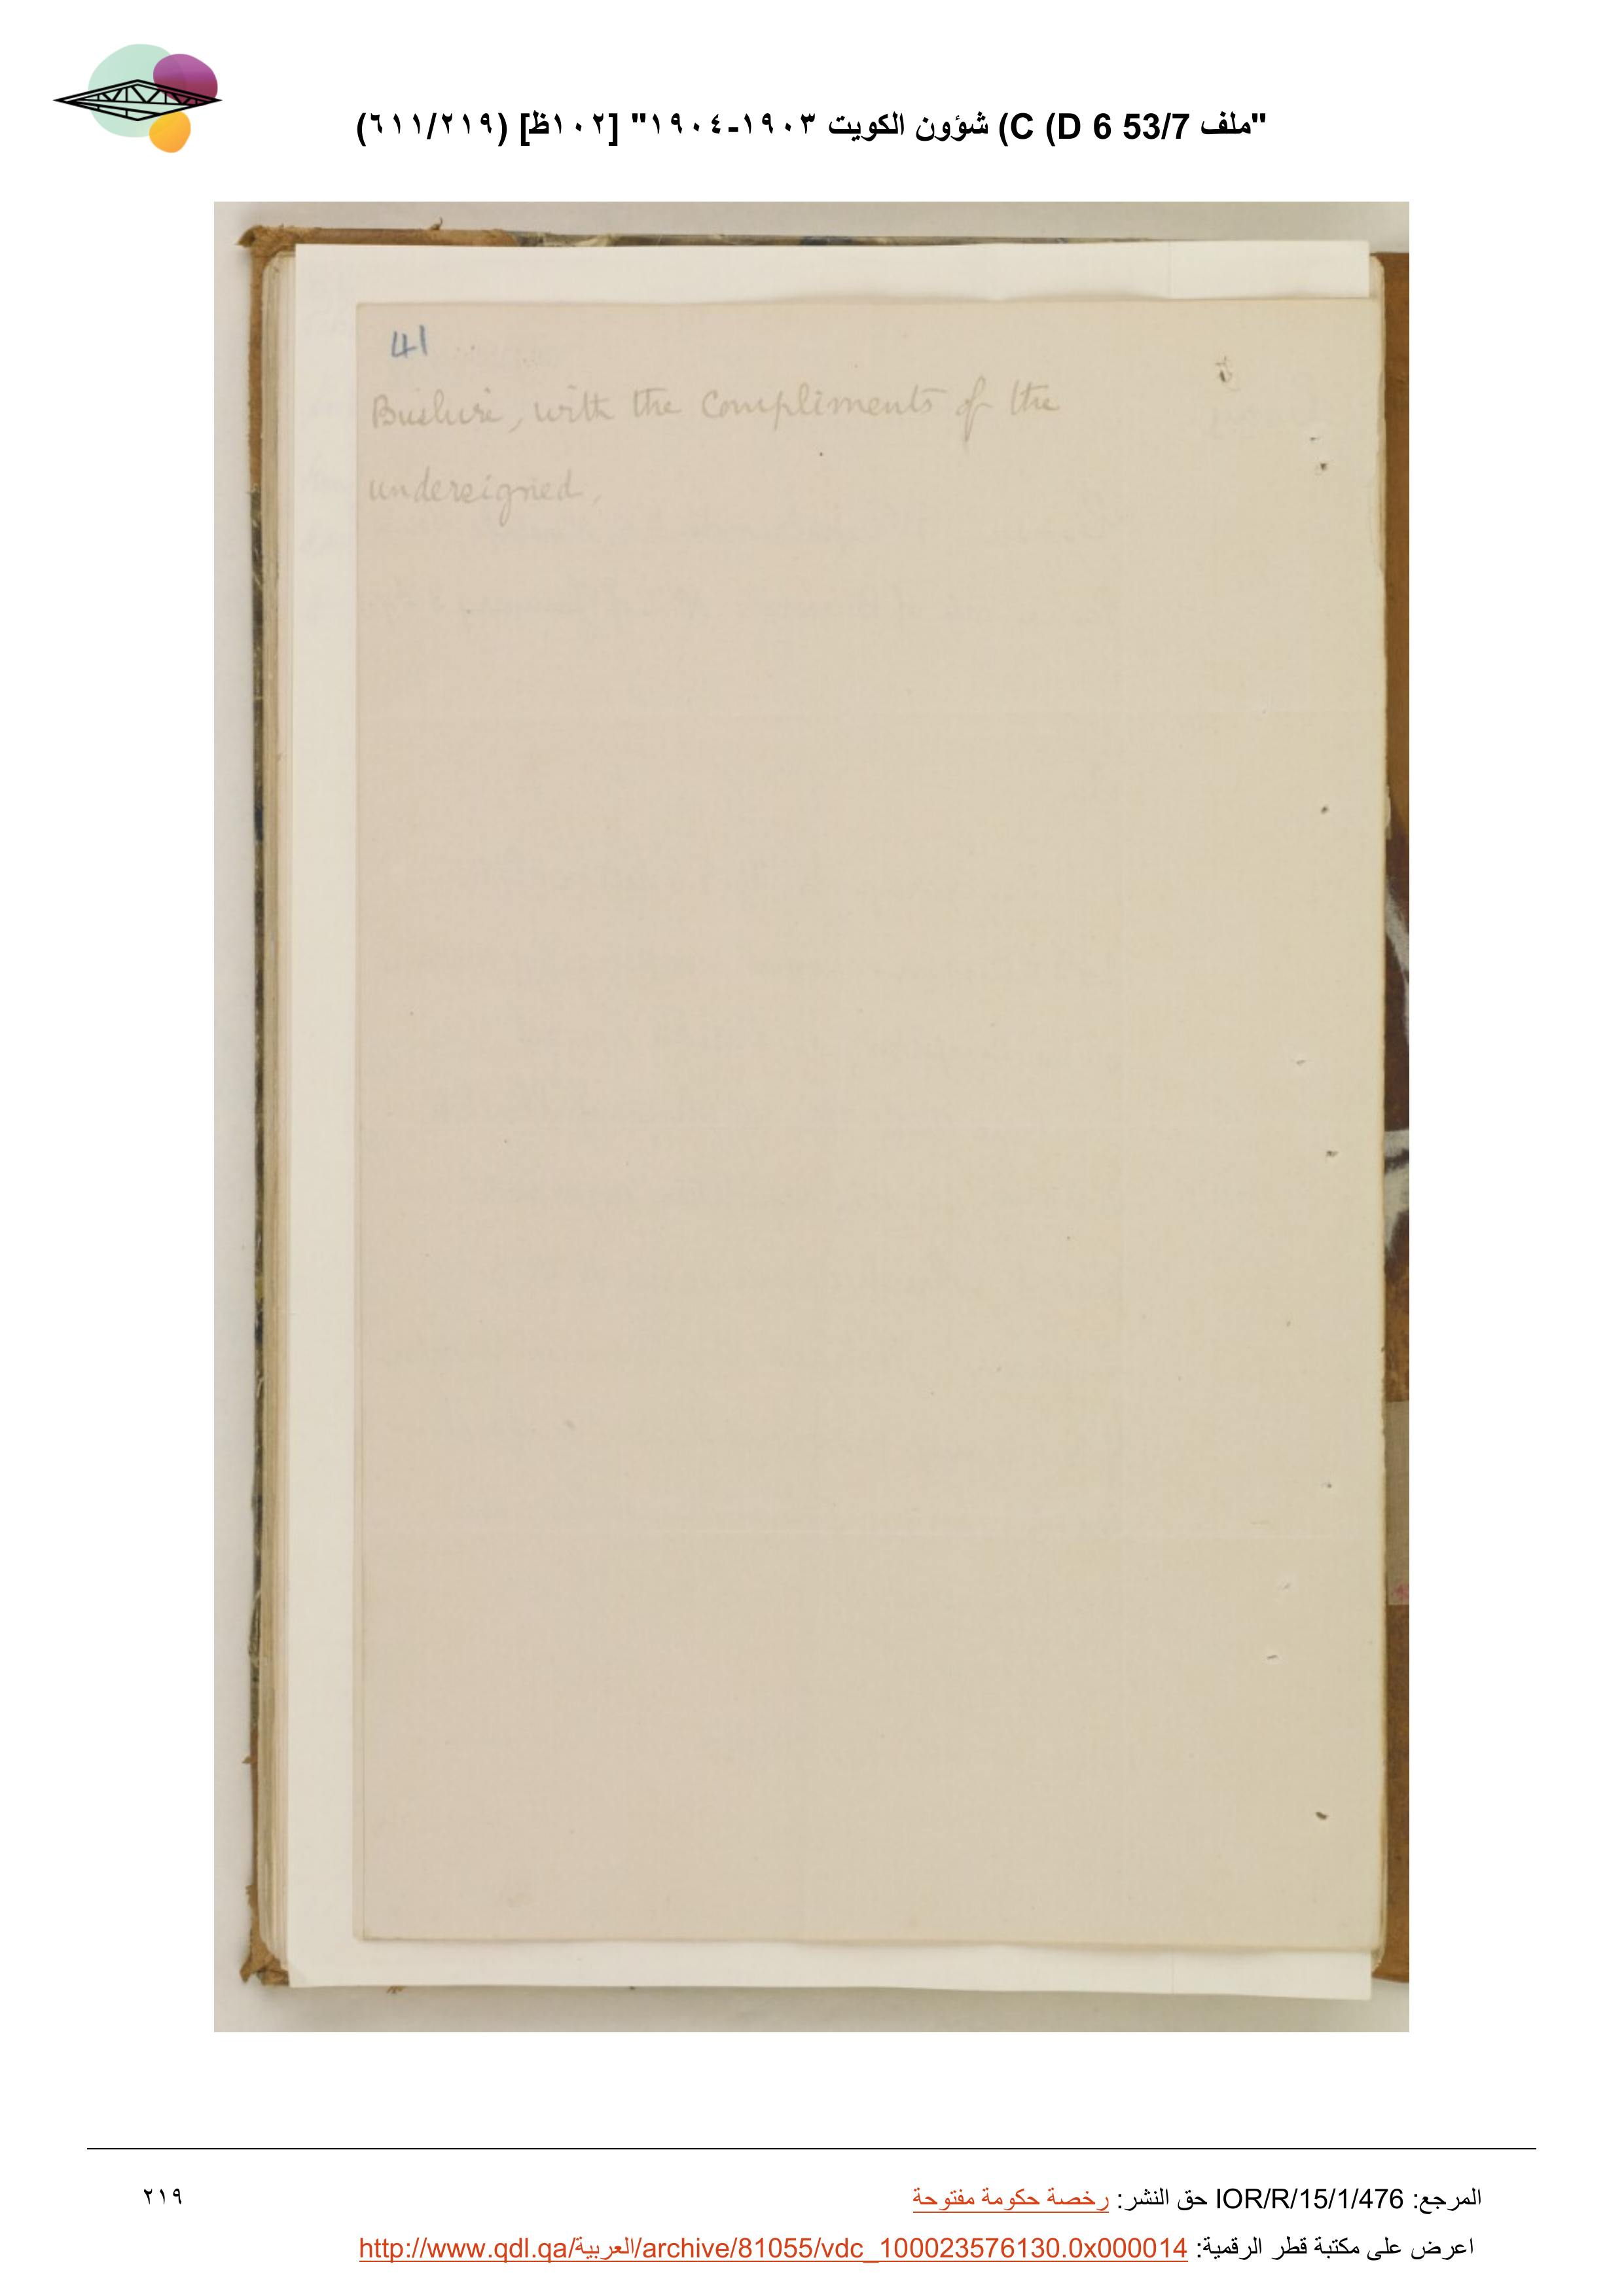 "ملف 53/7 C (D 6) شؤون الكويت ١٩٠٣-١٩٠٤" [١٠٢ظ] (٦١١/٢١٩)
41
Bushire, with the Compliments of the
undersigned,
المرجع: IOR/R/15/1/476 حق النشر: رخصة حكومة مفتوحة
٢١٩
اعرض على مكتبة قطر الرقمية: http://www.qdl.qa/العربية/archive/81055/vdc_100023576130.0x000014